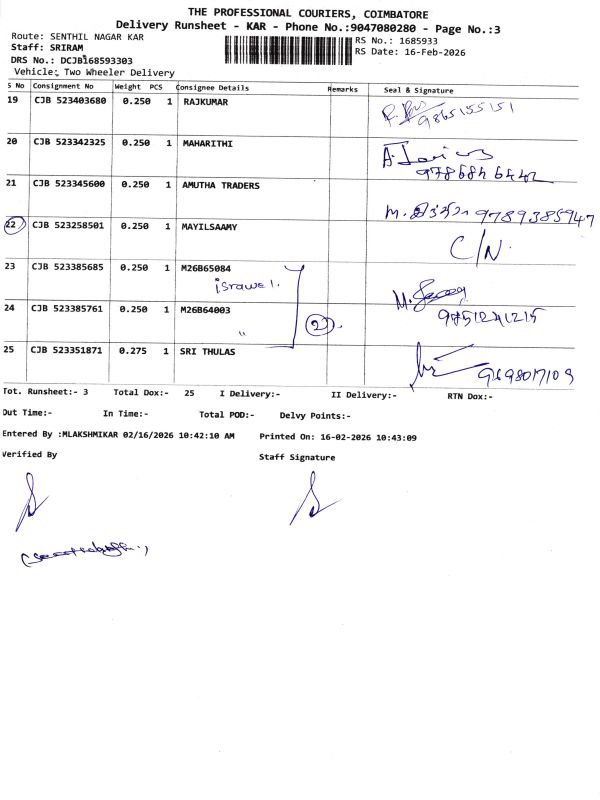 THE PROFESSIONAL COURIERS, COIMBATORE
Delivery Runsheet - KAR - Phone No.:9047080280 - Page No.:3
Route: SENTHIL NAGAR KAR
RS No.: 1685933
Staff: SRIRAM
RS Date: 16-Feb-2026
DRS No.: DCJB168593303
Vehicle: Two Wheeler Delivery
S No Consignment No Weight PCS Consignee Details Remarks Seal & Signature
19 CJB 523403680 0.250 1 RAJKUMAR 9865155151
20 CJB 523342325 0.250 1 MAHARITHI
9786846442
21 CJB 523345600 0.250 1 AMUTHA TRADERS
9789385947
22 CJB 523258501 0.250 1 MAYILSAAMY
C/N.
23 CJB 523385685 0.250 1 M26B65084
israwel.
24 CJB 523385761 0.250 1 M26B64003
9751241215
" 2
25 CJB 523351871 0.275 1 SRI THULAS
9698017109
Tot. Runsheet:- 3 Total Dox:- 25 I Delivery:- II Delivery:- RTN Dox:-
Out Time:- In Time:- Total POD:- Delvy Points:-
Entered By :MLAKSHMIKAR 02/16/2026 10:42:10 AM Printed On: 16-02-2026 10:43:09
Verified By Staff Signature